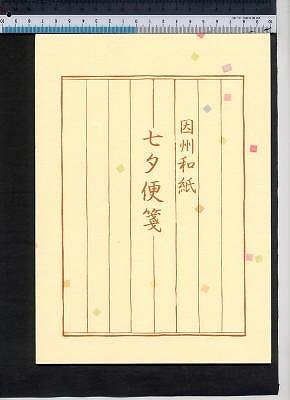 因州和紙
七夕便箋